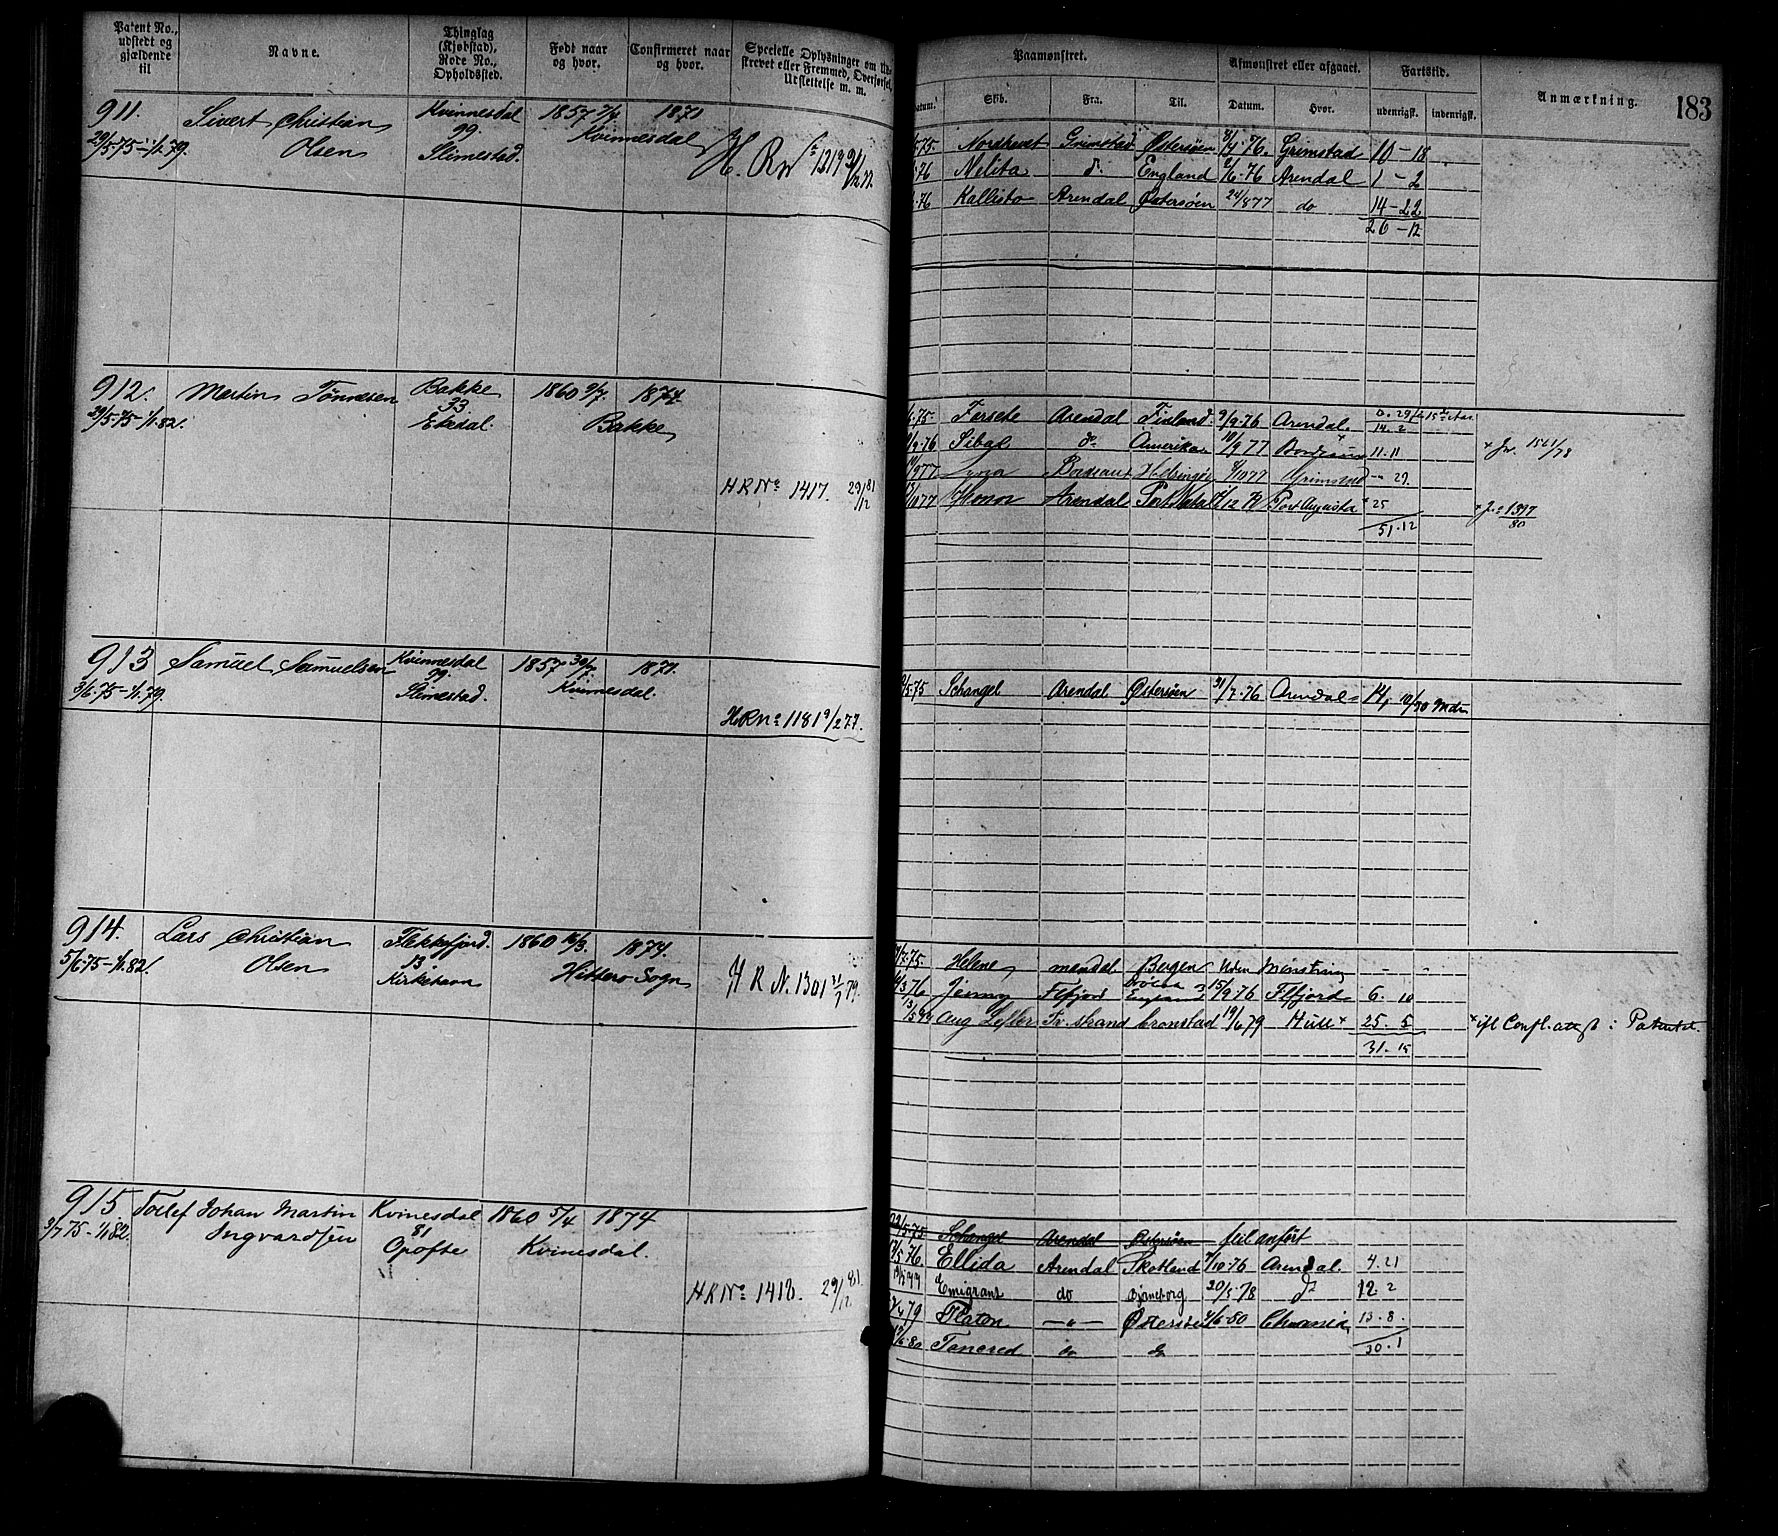 Patent No., udstedt og gjældende til
Navne.
Thinglag (Kjøbstad), Rode No., Opholdssted.
Født naar og hvor.
Confirmeret naar og hvor.
Specielle Oplysninger om Udskrevet eller Fremmed, Overførsel, Udslettelse m. m.
Paamønstret.
Afmønstret eller afgaaet.
Fartstid.
Anmærkning.
183
Datum.
Skib.
Fra.
Til.
Datum.
Hvor.
udenrigsk.
indenrigsk.
911. Sivert Christian Kvinnesdal 1857 1871
29/5 75 - 1/1 79. Olsen 99. Kvinnesdal
Slimestad.
H. R. No 1319
75. Nordhavet Grimstad Østersøen 8/4 76. Grimstad 10 - 18
76 Melita do England 2/6 76 Arendal 1 - 2
76 Kallisto Arendal Østersøen 24/8 77 do 14 - 22
26 - 12
912. Martin Tønnesen Bakke 1860 9/7. 1874.
29/5 75 - 1/1 82. 33 Bakke
Eikedal.
HRNo 1417. 29/12 81
75 Forsete Arendal Finland. 9/9 76 Arendal.
14. 2
9 76 do Amerika 10/9 77 11. 11 x Jr. 1561/78
9 77 Grimstad - 29.
10 77 Honor Arendal Port Natal 12 78 Port Augusta x 25 x Jr. 1397/80
51. 12
913 Samuel Samuelsen Kvinnesdal 1857 30/7. 1871.
3/6 75 - 1/1 79. 99. Kvinnesdal.
Slimestad.
HRNo 1181 9/2 77.
5 75 Schangel Arendal Østersøen 31/7 76 Arendal 14, 10/30 Mdr
914. Lars Christian Flekkefjord. 1860 16/3. 1874.
5/6 75 - 1/1 82. Olsen 13 Hitterø Sogn
Kirkehavn
H R N. 1301 21/7 79.
7 75 Helene Mandal Bergen Uden Mønstring - -
3 76 Jenny Flfjord England 15/9 76 Flfjord 6. 10
Aug Lefler Fr. strand Cronstad 19/6 79 Hull x 25. 5 x ifl Confl. attest i Patentet.
31. 15
915. Tollef Johan Martin Kvinesdal 1860 5/4 1874
3/7 75 - 1/1 82. Ingvardsen 81 Kvinesdal.
Opofte
HRNo 1418. 29/12 81.
29/5 75 Schangel Arendal Østersøen feil anført
5 76. Ellida Arendal Skotland 7/10 76 Arendal. 4. 21
Emigrant do Bjørneborg 20/5 78 do 12 2
4 79 Platon - " - Østersøen 4/6 80 Chrania. 13. 8.
6 80 Tancred do do 30. 1